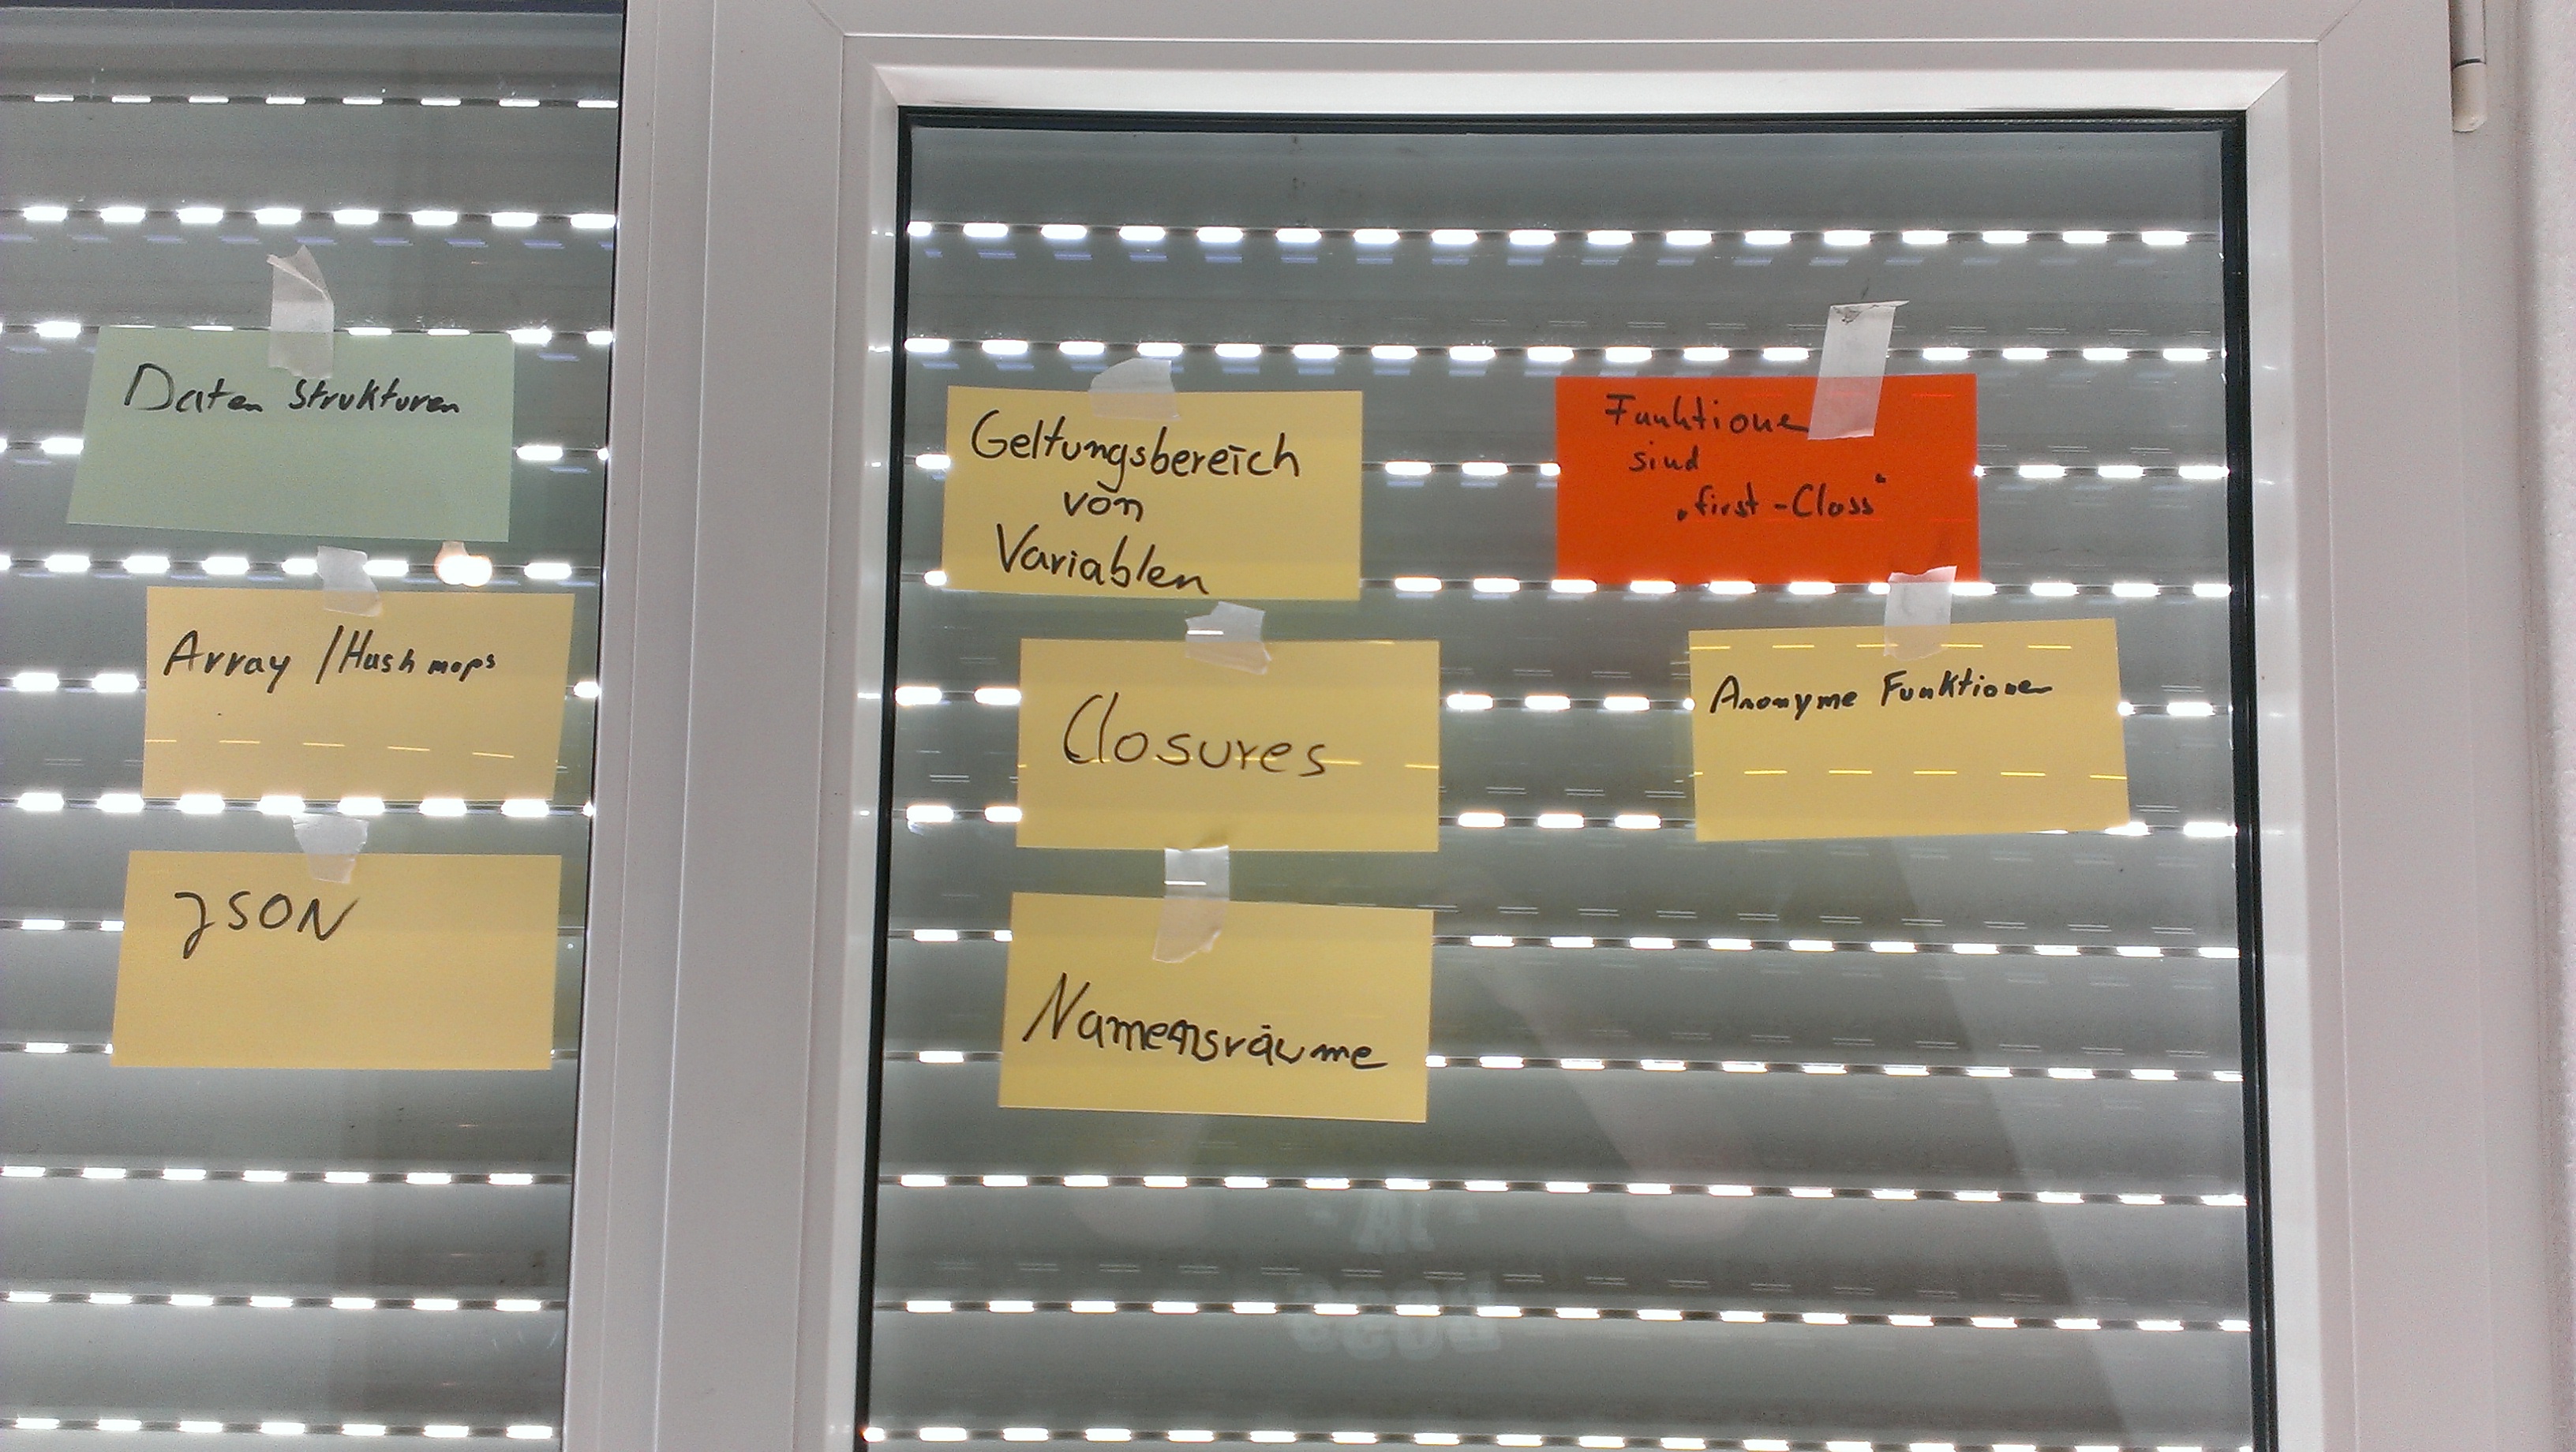 Daten Strukturen
Array / Hashmaps
JSON
Geltungsbereich
von
Variablen
Closures
Namensräume
Funktionen
sind
„first-Class“
Anonyme Funktionen